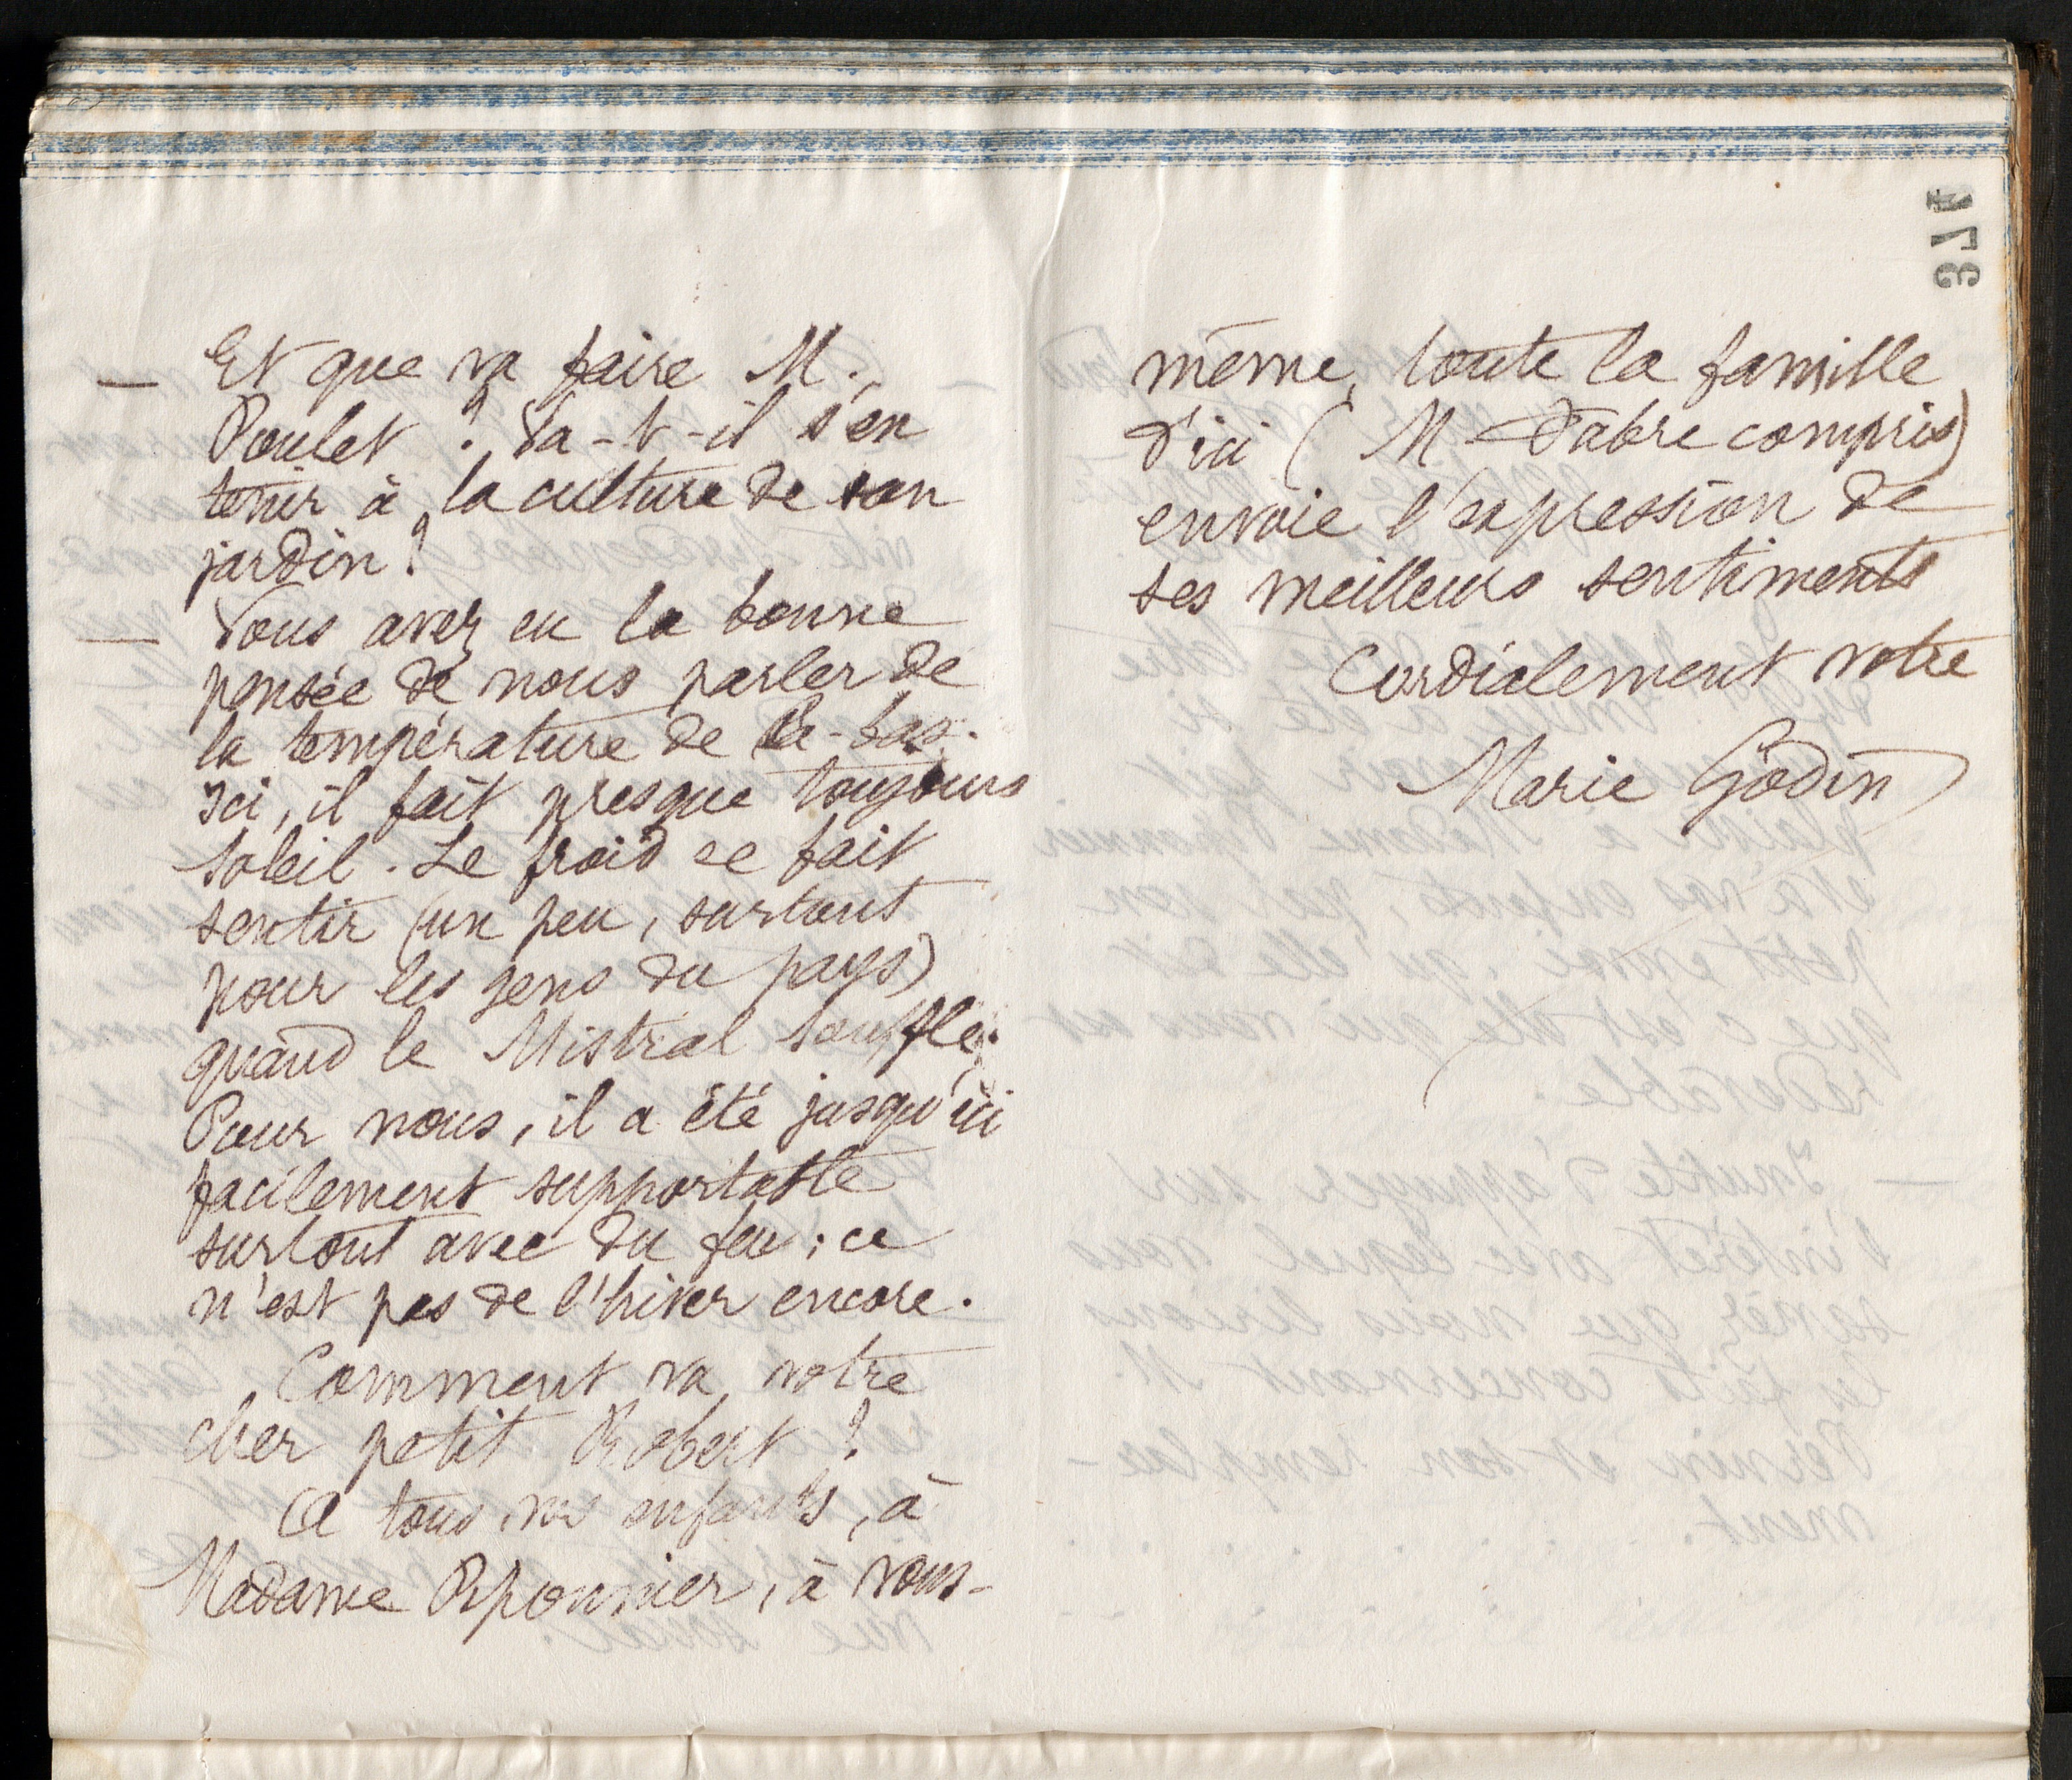 — Et que va faire M.
Poulet ? Va-t-il s'en
tenir à la culture de son
jardin ?
— Vous avez eu la bonne
pensée de nous parler de
la température de là-bas.
Ici, il fait presque toujours
soleil. Le froid se fait
sentir (un peu, surtout
pour les gens du pays)
quand le Mistral souffle.
Pour nous, il a été jusqu'ici
facilement supportable
surtout avec du feu ; ce
n'est pas de l'hiver encore.
Comment va votre
cher petit Robert ?
A tous vos enfants, à
Madame Piponnier, à vous-
même, toute la famille
d'ici (M Fabre compris)
envoie l'expression de
ses meilleurs sentiments
Cordialement votre
Marie Godin